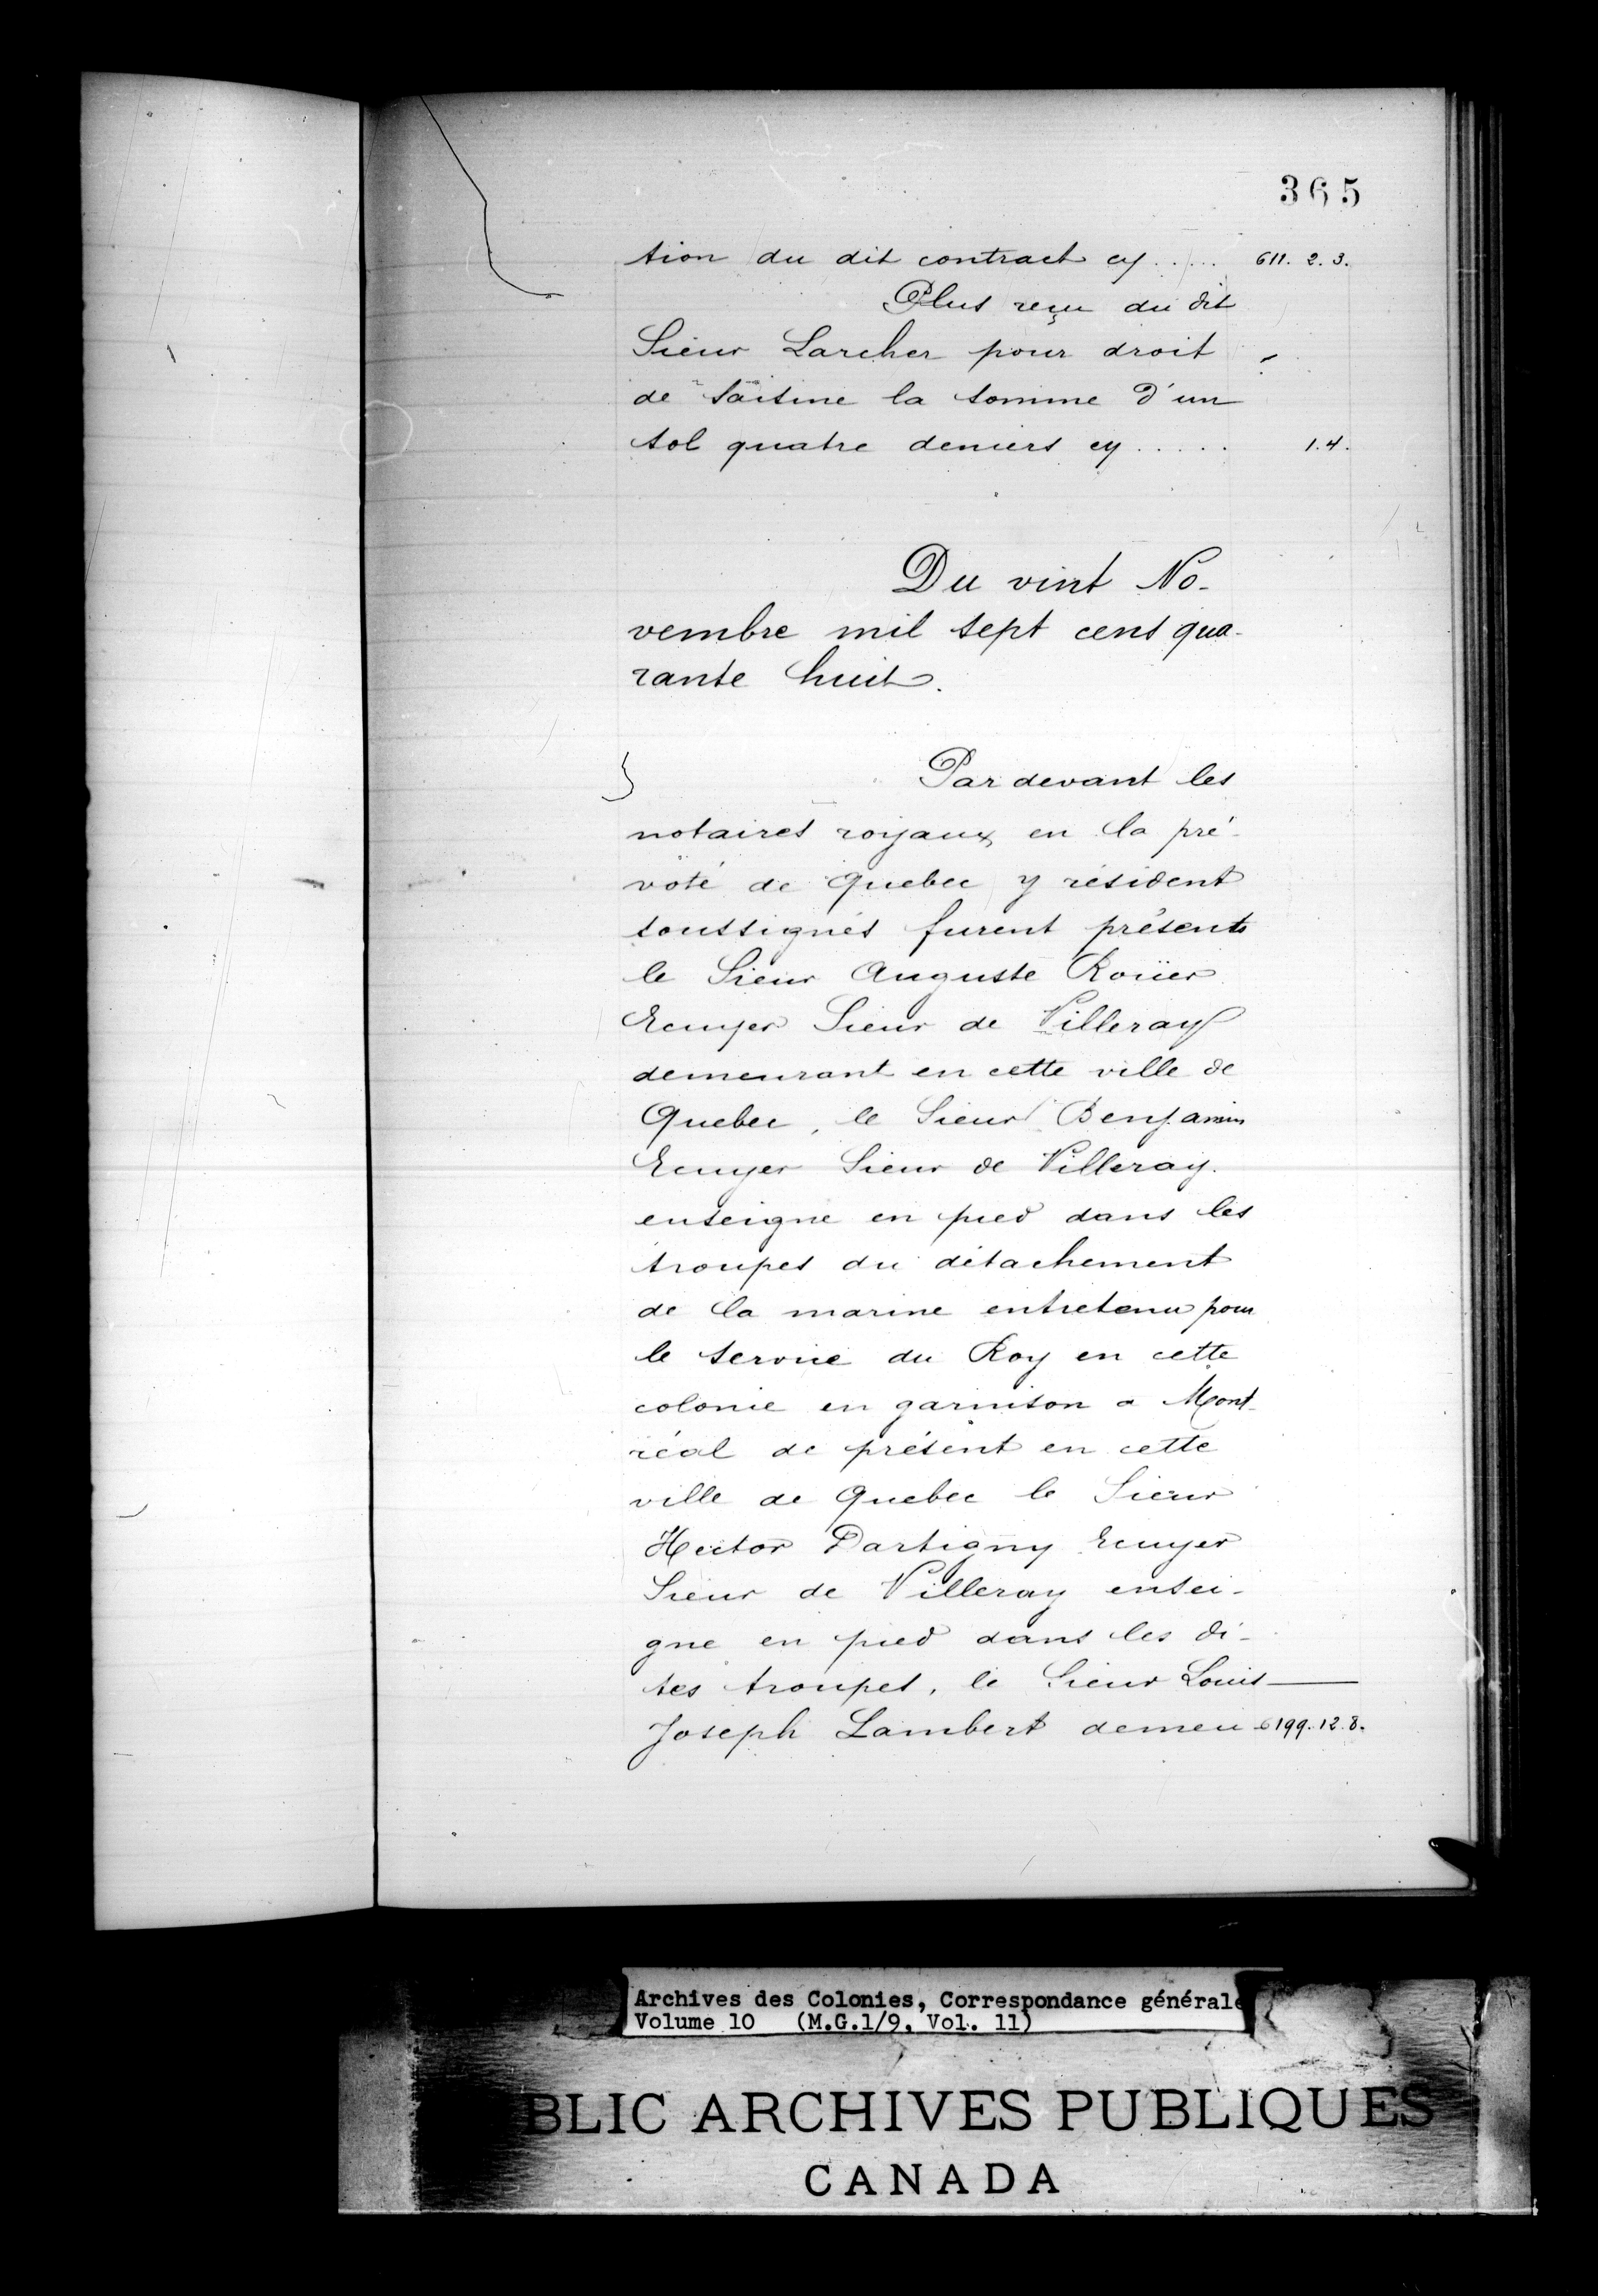 365
tion du dit contract cy ..... 611. 2. 3.
Plus reçu du dit
Sieur Larcher pour droit
de saisine la somme d'un
sol quatre deniers cy ..... 1. 4.
Du vint No-
vembre mil sept cens qua-
rante huit.
Par devant les
notaires royaux en la pré-
voté de Quebec y résident
soussignés furent présents
le Sieur Auguste Roüer
Ecuyer Sieur de Villeray
demeurant en cette ville de
Quebec, le Sieur Benjamin
Ecuyer Sieur de Villeray
enseigne en pied dans les
troupes du détachement
de la marine entretenu pour
le service du Roy en cette
colonie en garnison a Mont-
réal de présent en cette
ville de Quebec le Sieur
Hector Dartigny Ecuyer
Sieur de Villeray ensei-
gne en pied dans les di-
tes troupes, le Sieur Louis
Joseph Lambert demeu- 6199. 12. 8.
Archives des Colonies, Correspondance générale
Volume 10 (M.G.1/9, Vol. 11)
BLIC ARCHIVES PUBLIQUES
CANADA